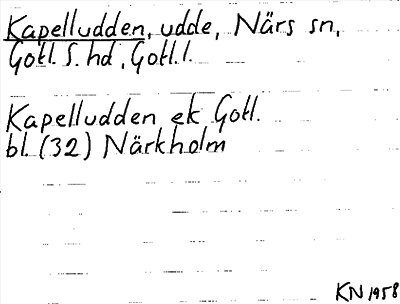 Kapelludden, udde, Närs sn,
Gotl. S. hd, Gotl. l.
Kapelludden ek Gotl.
bl. (32) Närkholm
KN 1958